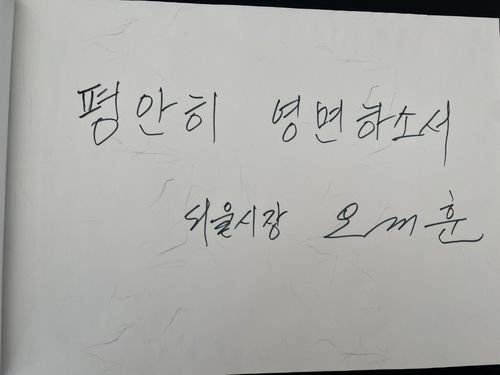 평안히 영면하소서
서울시장 오세훈